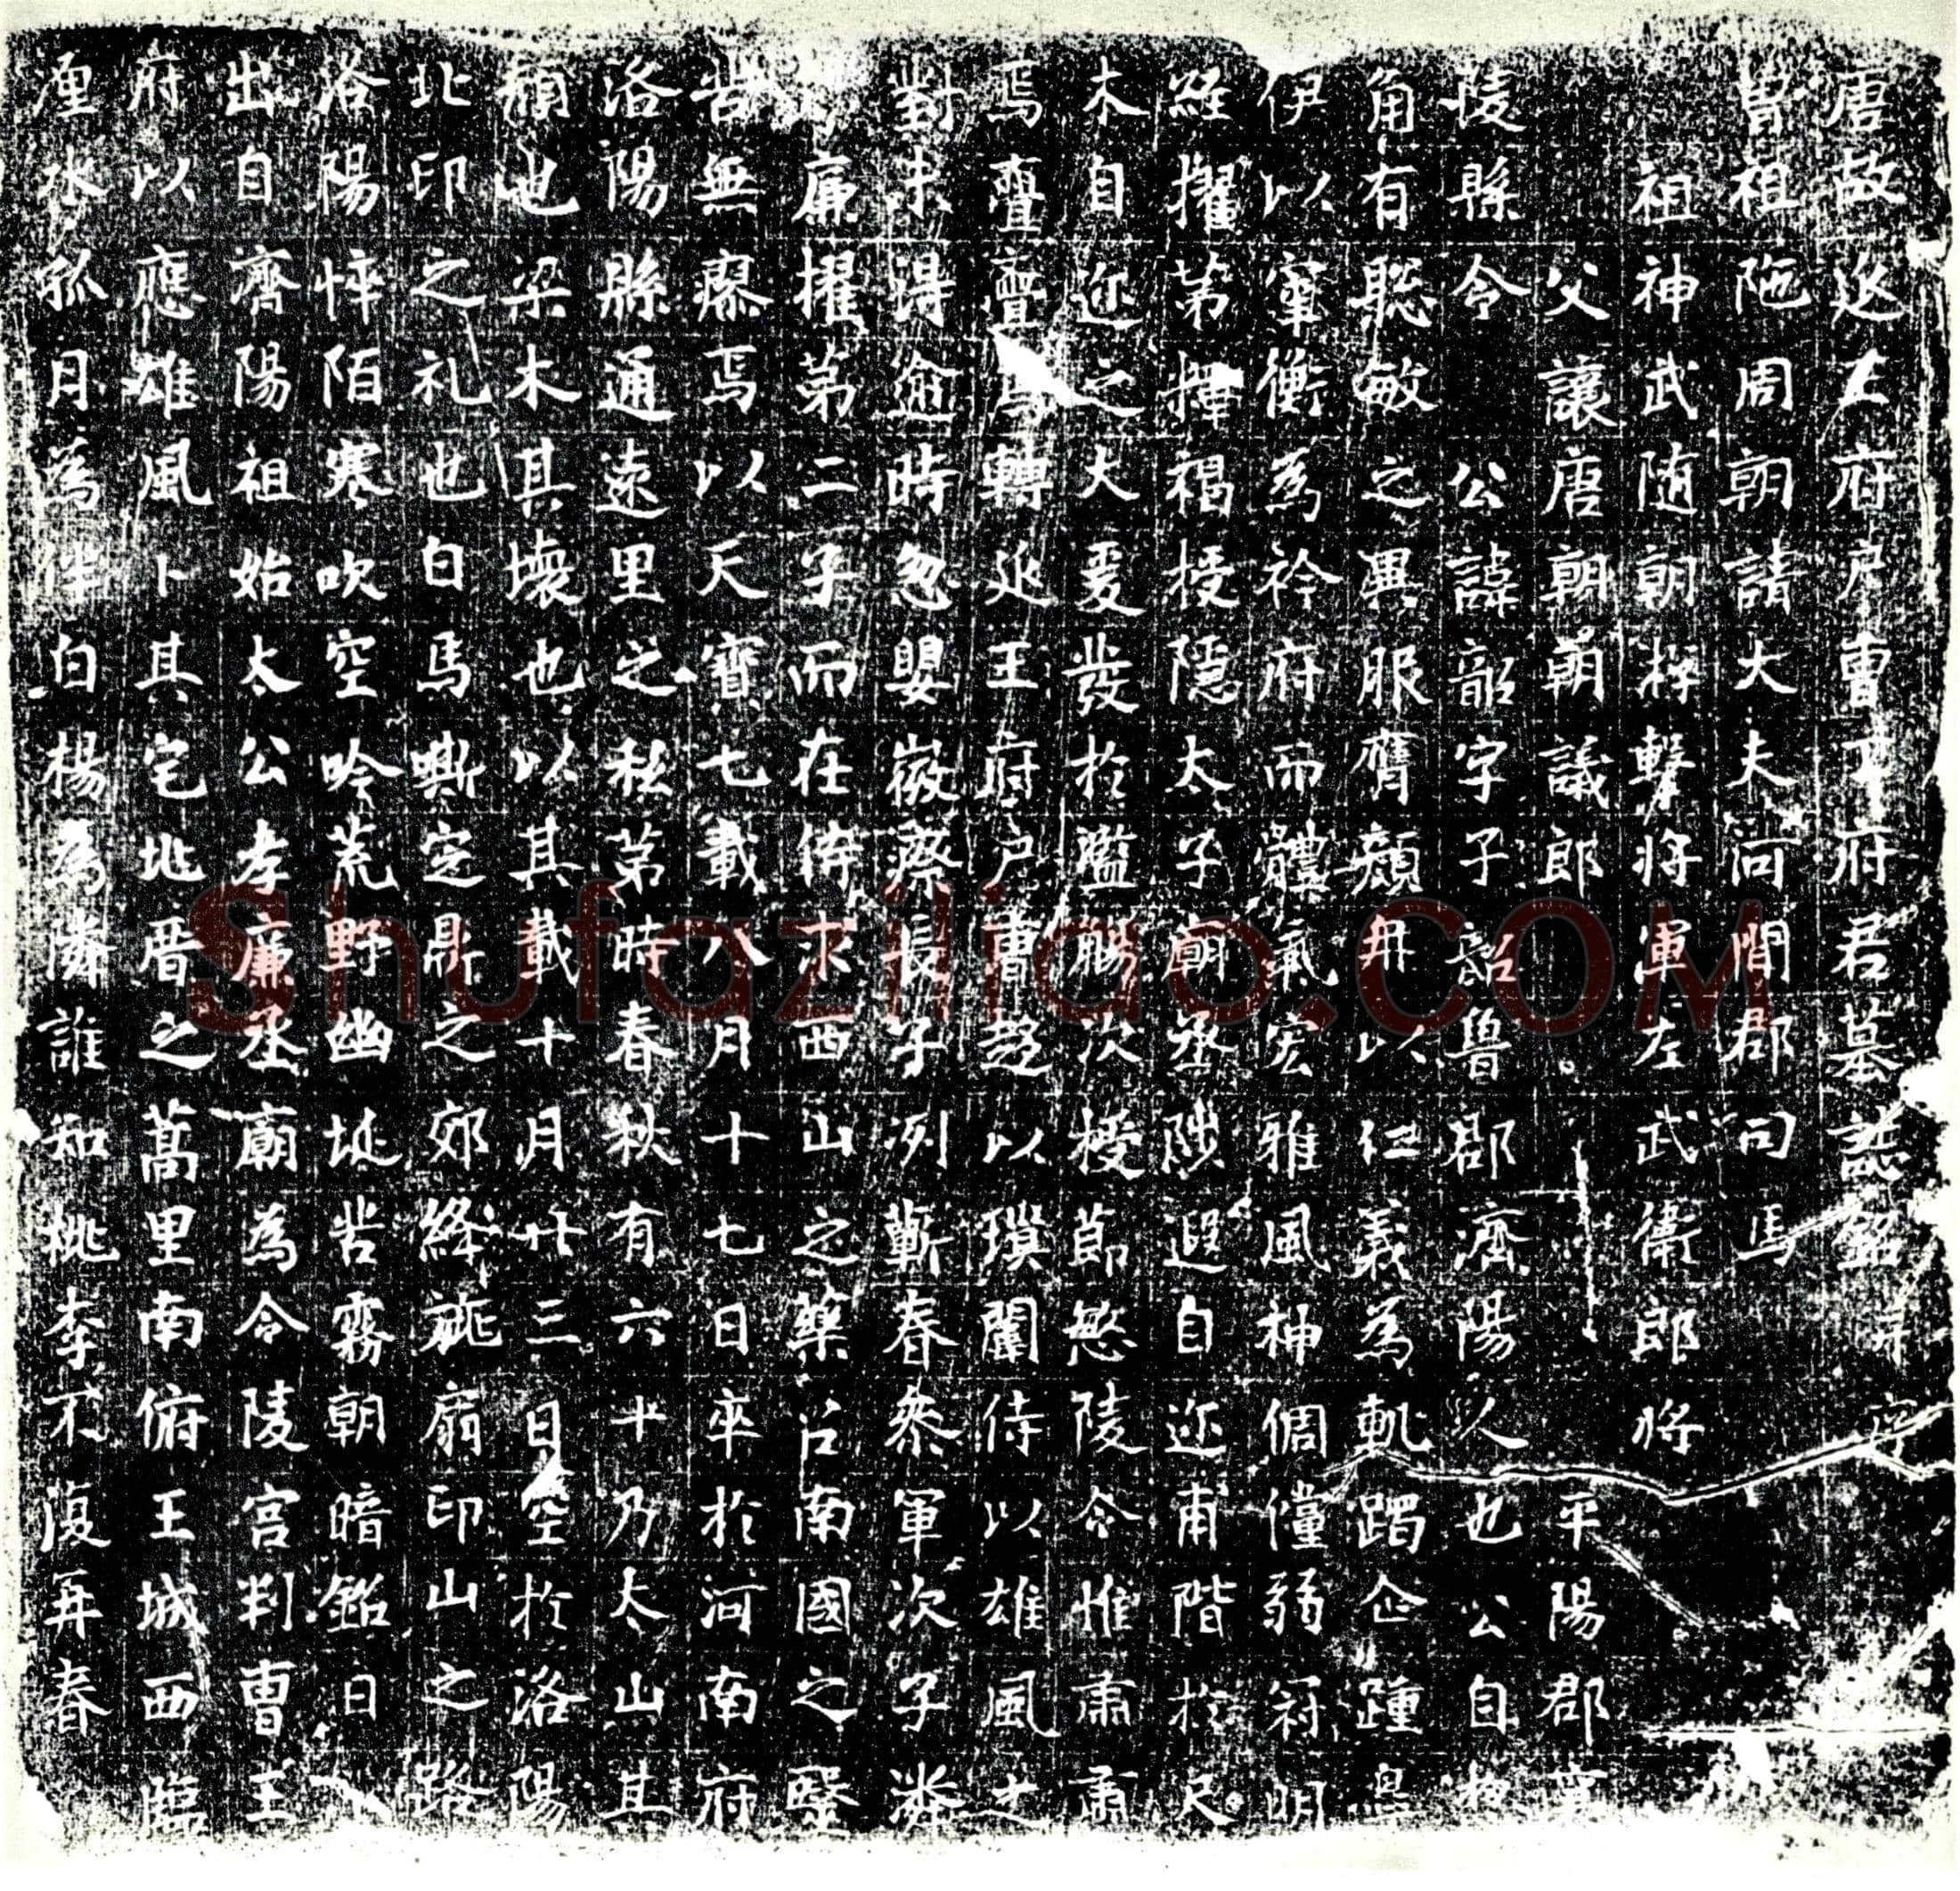 唐故延王府戶曹丁府君墓誌銘并序
曾祖陁周朝請大夫河間郡司馬
祖神武随朝擀擊將軍左武衞郎將
父讓唐朝朝議郎平陽郡
陵縣令公諱韶字子韶魯郡濟陽人也公自
角有聡敏之異服膺顏冉以仁義為軌躅企踵
伊以軍衡為衿府而體氣宏雅風神倜儻弱冠明
經擢第擇褐授隱太子廟丞陟遐自迩甫階於尺
木自迩之大爰發於濫觴次授節愍陵令惟肅肅
焉亹亹焉轉延王府戶曹趍以璞闈侍以雄風之
對未淂逾時忽嬰嶶瘵長子洌蘄春叅軍次子潾
廉擢第二子而在侍求西山之藥召南國之毉
昔無瘳焉以天寶七載八月十七日卒於河南府
洛陽縣通遠里之私第時春秋有六十乃太山其
頹也梁木其壞也以其載十月廿三日空於洛陽
北印之礼也白馬嘶定鼎之郊絳旐扇印山之路
洛陽悴陌寒吹空吟荒野幽埏昔霧朝暗銘曰
出自齊陽祖始太公孝廉丞廟為令陵宮判曹王
府以應雄風卜其宅兆厝之蒿里南俯王城西臨
瀍水孤月為伴白楊為隣誰知桃李不復再春
Shufaziliao.COM